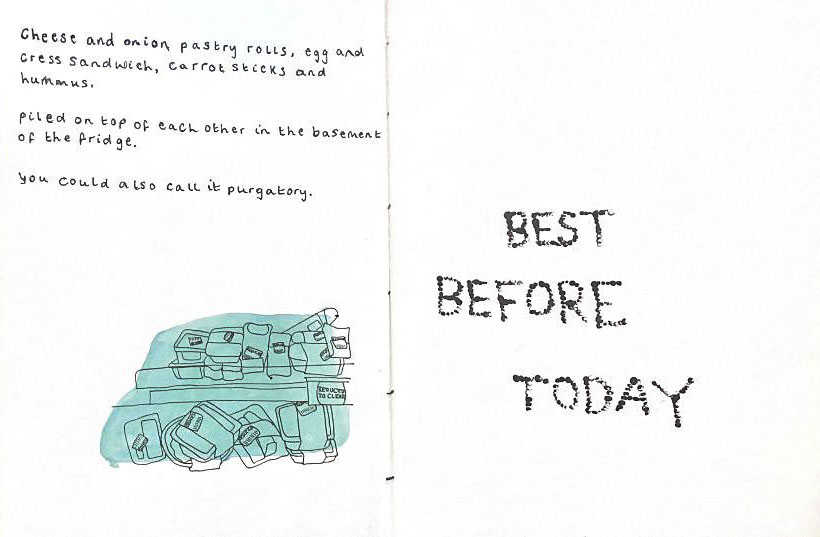 Cheese and onion pastry rolls, egg and
cress sandwich, carrot sticks and
hummus.
piled on top of each other in the basement
of the fridge.
you could also call it purgatory.
REDUCED
TO CLEAR
BEST
BEFORE
TODAY